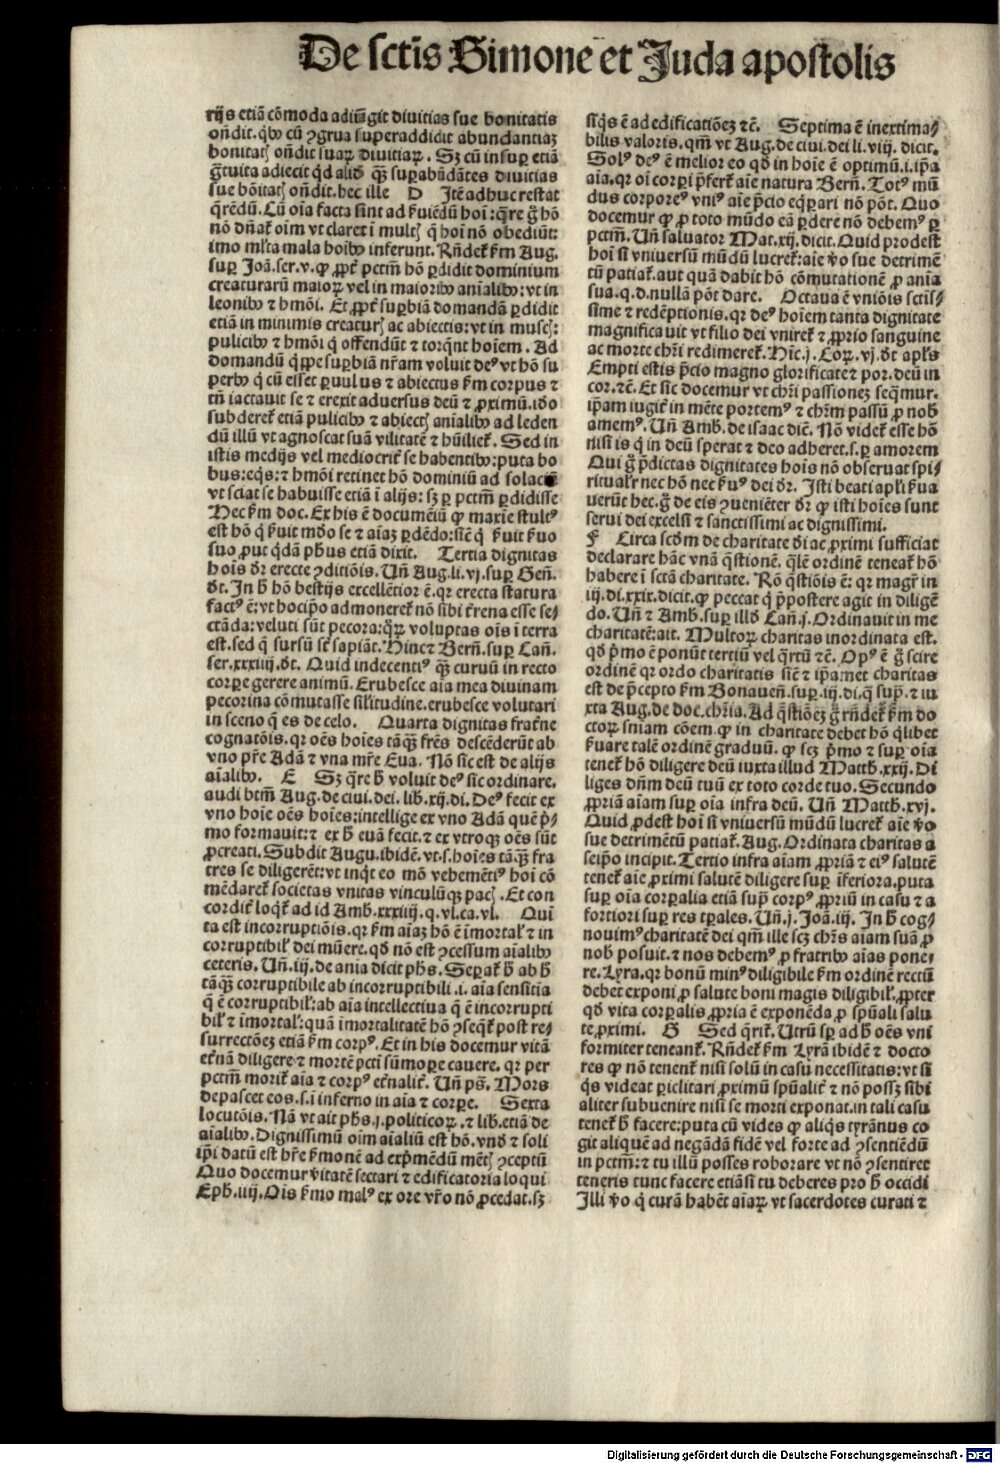 De sctīs Simone et Juda apostolis
rijs etiā cōmoda adiūgit diuitias sue bonitatis
oñdit. qꝫ cū ꝯgrua superaddidit abundantiaꝫ
bonitatꝭ oñdit suaꝝ diuitiaꝝ. Sꝫ cū insuꝑ etiā
gͣtuita adiecit qd̄ aliō qꝫ suꝑabūdātes diuitias
sue bōitatꝭ oñdit. hec ille D Itē adhuc restat
q̄rēdū. Cū oīa facta sint ad ẜuiēdū hoī: q̄re ḡ hō
nō dñat᷑ oīm vt claret ī multꝭ q̄ hoī nō obediūt:
imo ml̄ta mala hoībꝫ inferunt. Rñdet᷑ ẜm Aug.
suꝑ Joā. ser. v. ꝙ ꝓpt̄ pctm̄ hō ꝑdidit dominium
creaturarū maioꝝ vel in maioribꝫ aīalibꝫ: vt in
leonibꝫ ⁊ hmōi. Et ꝓpt̄ suꝑbiā domandā ꝑdidit
etiā in minimis creaturꝭ ac abiectis: vt in muscꝭ:
pulicibꝫ ⁊ hmōi q̄ offendūt ⁊ torq̄nt hoīem. Ad
domandū q̄ppe suꝑbiā nr̄am voluit deꝰ vt hō su
perbꝰ q̄ cū esset ꝑuulus ⁊ abiectus ẜm corpus ⁊
tñ iactauit se ⁊ erexit aduersus deū ⁊ ꝓximū. idō
subderet᷑ etiā pulicibꝫ ⁊ abiectꝭ aīalibꝫ ad leden
dū illū vt agnoscat suā vilitatē ⁊ hūiliet᷑. Sed in
istis medijs vel mediocrit̄ se habentibꝫ: puta bo
bus: eq̄s: ⁊ hmōi retinet hō dominiū ad solaciū
vt sciat se habuisse etiā ī alijs: sꝫ ꝑ pctm̄ ꝑdidisse
Hec ẜm doc. Ex his ē documētū ꝙ maxīe stultꝰ
est hō q̄ ẜuit mūdo se ⁊ aīaꝫ ꝑdēdo: sic̄ q̄ ẜuit ẜuo
suo, put qd̄ā phus etiā dixit. Tertia dignitas
hoīs dr̄ erecte ꝯditiōis. Uñ Aug. li. vj. suꝑ Geñ.
dt̄. In h̄ hō bestijs excellētior ē. qꝛ erecta statura
factꝰ ē: vt hoc ip̄o admoneret᷑ nō sibi t̄rena esse se⸗
ctāda: veluti sūt pecora: q̄ꝝ voluptas oīs ī terra
est. sed q̄ sursū st̄ sapiāt. Hinc ⁊ Berñ. suꝑ Cañ.
ser. xxxiiij. dt̄. Quid indecentiꝰ qꝫ curuū in recto
corꝑe gerere animū. Erubesce aīa mea diuinam
pecorina cōmutasse sil̄itudine. erubesce volutari
in sceno q̄ es de celo. Quarta dignitas frat̄ne
cognatōis. qꝛ oēs hoīes tāqꝫ fr̄es descēderūt ab
vno pr̄e Adā ⁊ vna mr̄e Eua. Nō sic est de alijs
aīalibꝫ. E Sꝫ q̄re h̄ voluit deꝰ sic ordinare.
audi btm̄ Aug. de ciui. dei. lib. xij. di. Deꝰ fecit ex
vno hoīe oēs hoīes: intellige ex vno Adā quē p̄⸗
mo formauit: ⁊ ex h̄ euā fecit. ⁊ ex vtroqꝫ oēs sūt
ꝓcreati. Subdit Augu. ibidē. vt. s. hoīes tāqꝫ fra
tres se diligerēt: vt inq̄t eo mō vehemētiꝰ hoī cō
mēdaret᷑ societas vnitas vinculūqꝫ pacꝭ. Et con
cordit̄ loqt᷑ ad id Amb. xxxiiij. q. vl. ca. vl. Quī
ta est incorruptiōis. qꝛ ẜm aīaꝫ hō ē īmortal᷑ ⁊ in
corruptibil᷑ dei mūere. qd̄ nō est ꝯcessum aīalibꝫ
ceteris. Uñ. iij. de aīa dicit phs. Seꝑat᷑ h̄ ab h̄
tāqꝫ corruptibile ab incorruptibili .i. aīa sensitīa
q̄ ē corruptibil᷑: ab aīa intellectiua q̄ ē incorrupti
bil᷑ ⁊ īmortal᷑: quā īmortalitatē hō ꝯseqt᷑ post re⸗
surrectōeꝫ etiā ẜm corpꝰ. Et in his docemur vitā
et̄nā diligere ⁊ mortē pctī sūmoꝑe cauere. qꝛ per
pctm̄ morit᷑ aīa ⁊ corpꝰ et̄nalit̄. Uñ ps̄. Mors
depascet eos. s. ī inferno in aīa ⁊ corꝑe. Sexta
locutōis. Nā vt ait phs. j. politicoꝝ. ⁊ lib. etiā de
aīalibꝫ. Dignissimū oīm aīaliū est hō. vnd̄ ⁊ soli
ip̄i datū est hr̄e ẜmonē ad exp̄mēdū mētꝭ ꝯceptū
Quo docemur v̄itatē sectari ⁊ edificatoria loqui
Eph. iiij. Oīs ẜmo malꝰ ex ore vr̄o nō ꝓcedat. sꝫ
siq̄s ē ad edificatiōeꝫ ⁊c̄. Septima ē inextima⸗
bilis valoris. qm̄ vt Aug. de ciui. dei li. viij. dicit.
Solꝰ deꝰ ē melior eo qd̄ in hoīe ē optimū .i. ip̄a
aīa. qꝛ oī corꝑi p̄fert᷑ aīe natura Berñ. Totꝰ mū
dus corporeꝰ vniꝰ aīe p̄cio eq̄ꝑari nō pōt. Quo
docemur ꝙ ꝓ toto mūdo eā ꝑdere nō debemꝰ ꝑ
pctm̄. Uñ saluator Mat. xij. dicit. Quid prodest
hoī si vniuersū mūdū lucret᷑: aīe v̄o sue detrimē
tū patiat᷑. aut quā dabit hō cōmutationē ꝓ anīa
sua. q. d. nullā pōt dare. Octaua ē vniōis sctis⸗
sime ⁊ redēptionis. qꝛ deꝰ hoīem tanta dignitate
magnificauit vt filio dei vniret᷑ ⁊ ꝓprio sanguine
ac morte chr̄i redimeret᷑. Hīc. j. Coꝝ. vj. dt̄ apl̄s
Empti estis p̄cio magno glorificate ⁊ por. deū in
cor. ⁊c̄. Et sic docemur vt chr̄i passioneꝫ seq̄mur.
ip̄am iugit̄ in mēte portemꝰ ⁊ chr̄m passū ꝓ nob̄
amemꝰ. Uñ Amb. de isaac dic̄. Nō videt᷑ esse hō
nisi is q̄ in deū sperat ⁊ deo adheret. s. ꝑ amorem
Qui ḡ p̄dictas dignitates hoīs nō obseruat spi⸗
ritualr̄ nec hō nec ẜuꝰ dei dr̄. Isti beati apl̄i ẜua
uerūt hec. ḡ de eis ꝯueniēter dr̄ ꝙ isti hoīes sunt
serui dei excelsi ⁊ sanctissimi ac dignissimi.
F Circa scdm̄ de charitate dī ac ꝓximi sufficiat
declarare hāc vnā q̄stionē. q̄lē ordinē teneat᷑ hō
habere ī sctā charitate. Rō q̄stiōis ē: qꝛ magr̄ in
iij. di. xxix. dicit. ꝙ peccat q̄ p̄postere agit in diligē
do. Uñ ⁊ Amb. suꝑ illd̄ Cañ. j. Ordinauit in me
charitatē: ait. Multoꝝ charitas inordinata est.
qd̄ p̄mo ē ponūt tertiū vel q̄rtū ⁊c̄. Opꝰ ē ḡ scire
ordinē qꝛ ordo charitatis sic̄ ⁊ ip̄amet charitas
est de p̄cepto ẜm Bonaueñ. suꝑ. iij. di. q̄ sup̄. ⁊ iu
xta Aug. de doc. chr̄ia. Ad q̄stiōeꝫ ḡ rñdet᷑ ẜm do
ctoꝝ sniam cōem ꝙ in charitate debet hō q̄libet
ẜuare talē ordinē graduū. ꝙ scꝫ p̄mo ⁊ suꝑ oīa
tenet᷑ hō diligere deū iuxta illud Matth. xxij. Di
liges dñm deū tuū ex toto corde tuo. Secundo
ꝓpriā aīam suꝑ oīa infra deū. Uñ Matth. xvj.
Quid ꝓdest hoī si vniuersū mūdū lucret᷑ aīe v̄o
sue detrimētū patiat᷑. Aug. Ordinata charitas a
seip̄o incipit. Tertio infra aīam ꝓpriā ⁊ eiꝰ salutē
tenet᷑ aīe ꝓximi salutē diligere suꝑ īferiora. puta
suꝑ oīa corꝑalia etiā sup̄ corpꝰ ꝓpriū in casu ⁊ a
fortiori suꝑ res tꝑales. Uñ. j. Joā. iij. In h̄ cog⸗
nouimꝰ charitatē dei qm̄ ille scꝫ chr̄s aīam suā ꝓ
nob̄ posuit. ⁊ nos debemꝰ ꝓ fratribꝫ aīas pone⸗
re. Lyra. qꝛ bonū minꝰ diligibile ẜm ordinē rectū
debet exponi ꝓ salute boni magis diligibil᷑. ꝓpter
qd̄ vita corꝑalis ꝓpria ē exponēda ꝓ spūali salu
te ꝓximi. G Sed q̄rit᷑. Utrū sꝑ ad h̄ oēs vni
formiter teneant᷑. Rñdet᷑ ẜm Lyrā ibidē ⁊ docto
res ꝙ nō tenent᷑ nisi solū in casu necessitatis: vt si
q̄s videat ꝑiclitari ꝓximū spūalit̄ ⁊ nō possꝫ sibi
aliter subuenire nisi se morti exponat. in tali casu
tenet᷑ h̄ facere: puta cū vides ꝙ aliq̄s tyrānus co
git aliquē ad negādā fidē vel forte ad ꝯsentiēdū
in pctm̄: ⁊ tu illū posses roborare vt nō ꝯsentiret
teneris tunc facere etiāsi tu deberes pro h̄ occidi
Illi v̄o q̄ curā habēt aīaꝝ vt sacerdotes curati ⁊
Digitalisierung gefördert durch die Deutsche Forschungsgemeinschaft - DFG